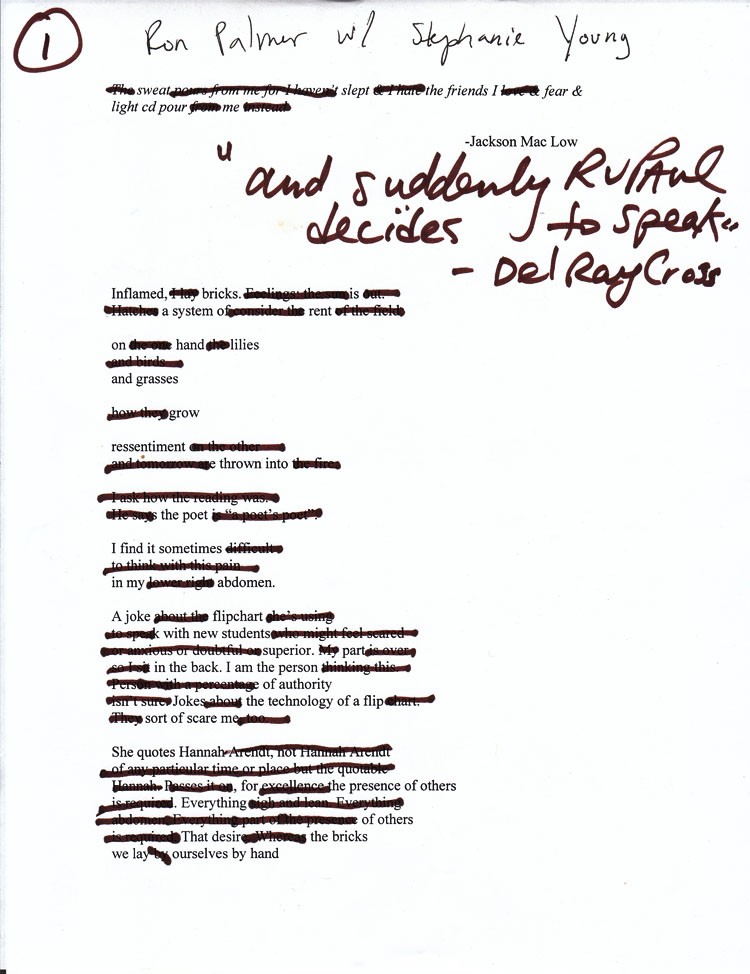 1
Ron Palmer w/ Stephanie Young
The sweat pours from me for I haven't slept & I hate the friends I love & fear &
light cd pour from me instead
-Jackson Mac Low
"and suddenly RuPAul
decides to speak"
- Del Ray Cross
Inflamed, I lay bricks. Feelings: the sun is out.
Hatches a system of consider the rent of the field
on the one hand the lilies
and birds
and grasses
how they grow
ressentiment on the other
and tomorrow are thrown into the fire.
I ask how the reading was.
He says the poet is "a poet's poet".
I find it sometimes difficult
to think with this pain
in my lower right abdomen.
A joke about the flipchart she's using
to speak with new students who might feel scared
or anxious or doubtful or superior. My part is over
so I sit in the back. I am the person thinking this.
Person with a percentage of authority
isn't sure. Jokes about the technology of a flip chart.
They sort of scare me, too.
She quotes Hannah Arendt, not Hannah Arendt
of any particular time or place but the quotable
Hannah. Passes it on, for excellence the presence of others
is required. Everything high and lean. Everything
abdomen. Everything part of the presence of others
is required. That desire. Whereas the bricks
we lay by ourselves by hand